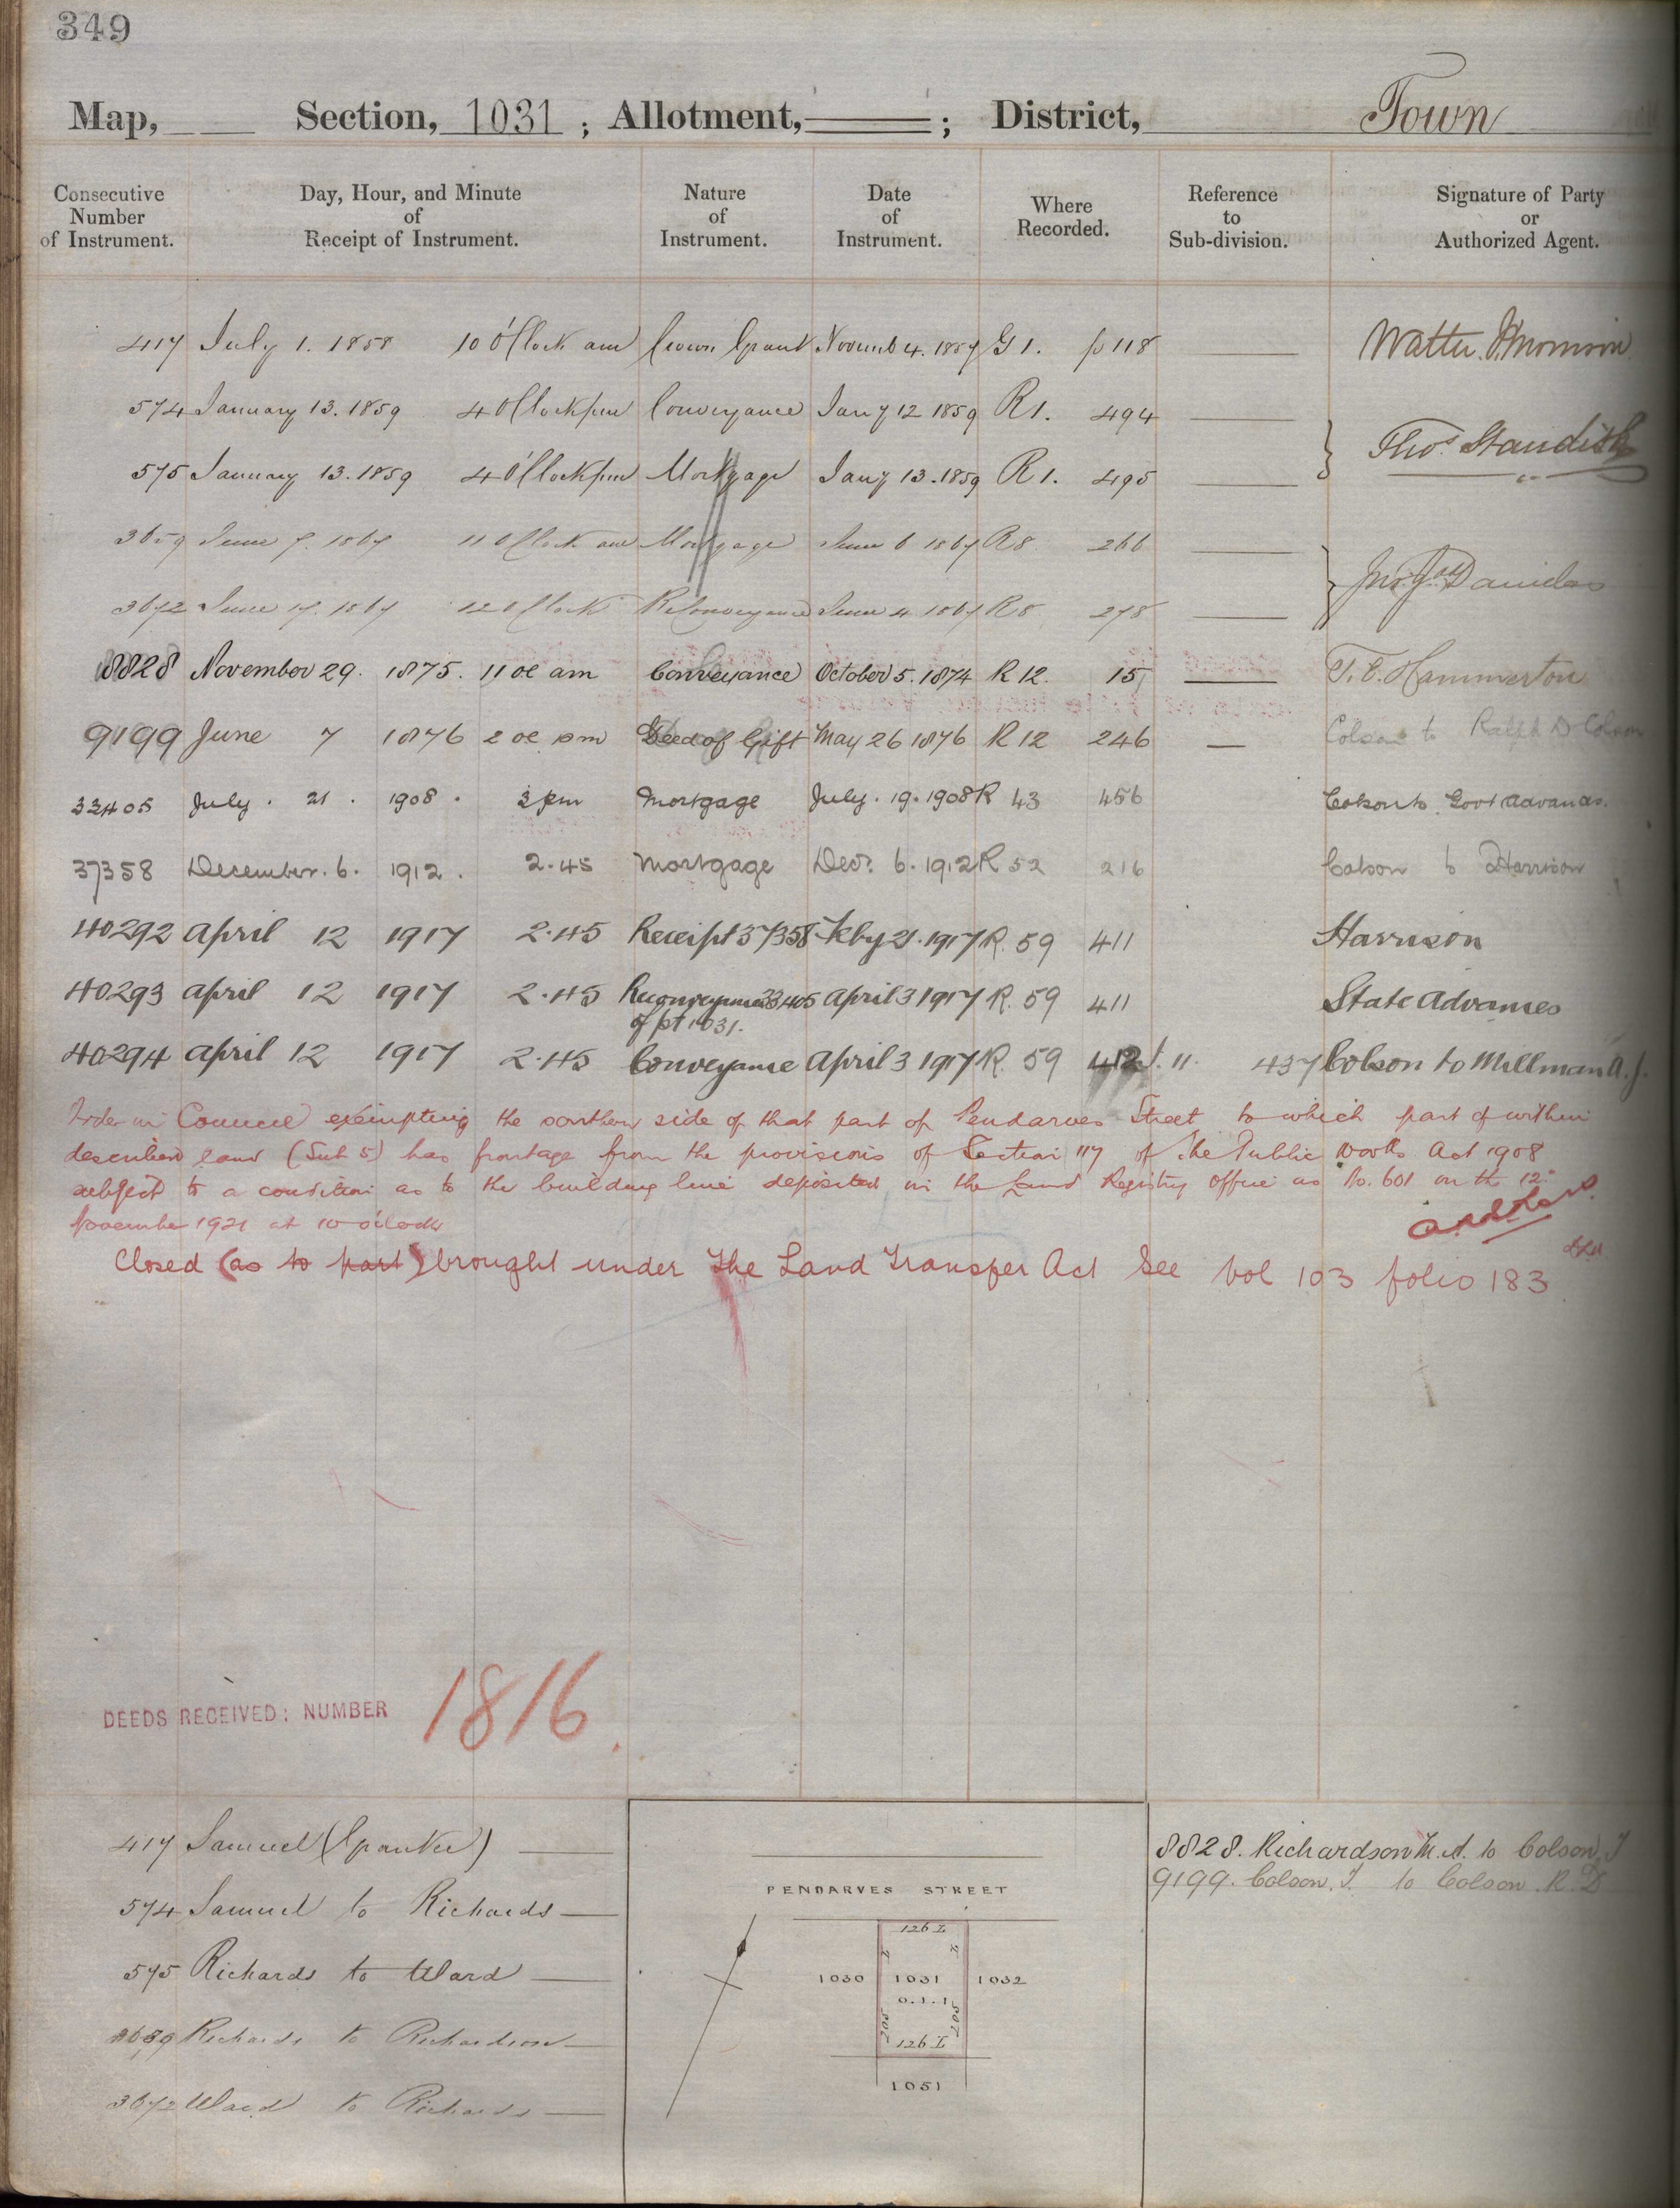 349
Map, Section, 1031 ; Allotment, ; District, Town
Consecutive Number of Instrument. Day, Hour, and Minute of Receipt of Instrument. Nature of Instrument. Date of Instrument. Where Recorded. Reference to Sub-division. Signature of Party or Authorized Agent.
417 July 1. 1858 10 O'Clock am Crown Grant Novemb 4. 1857 G 1. p 118
574 January 13. 1859 4 O'Clock pm Conveyance Jany 12 1859 R 1. 494
575 January 13. 1859 4 O'Clock pm Mortgage Jany 13. 1859 R 1. 495 Thos. Standish
3659 June 7. 1867 11 O'Clock am Mortgage June 6 1867 R 8 266
3672 June 17. 1867 12 O'Clock Reconveyance June 4 1867 R 8 278
8828 November 29. 1875. 11 oc am Conveyance October 5. 1874 R 12. 15 Hammerton
9199 June 7 1876 2 oc pm Deed of Gift May 26 1876 R 12 246 Colson to Ralph D Colson
33405 July. 21. 1908. 3 pm Mortgage July. 19. 1908 R 43 456 Colson to Govt Advances.
37358 December. 6. 1912. 2.45 Mortgage Decr. 6. 1912 R 52 216 Colson to Harrison
40292 April 12 1917 2.45 Receipt 37358 Feby 21. 1917 R. 59 411 Harrison
40293 April 12 1917 2.45 Reconveyance 33405 April 3 1917 R. 59 411 State Advances
of pt 1031.
40294 April 12 1917 2.45 Conveyance April 3 1917 R. 59 412 11. 437 Colson to Millman A. J.
Order in Council exempting the southern side of that part of Pendarves Street to which part of within
described land (Sub 5) has frontage from the provisions of Section 117 of the Public Works Act 1908
subject to a condition as to the building line deposited in the Land Registry Office as No. 601 on the 12th
November 1921 at 10 o'clock
Closed (as to part) brought under the Land Transfer Act See Vol 103 folio 183
DEEDS RECEIVED: NUMBER 1816.
417 Samuel (Grantee)
574 Samuel to Richards
575 Richards to Ward
3659 Richards to Richardson
3672 Ward to Richards
PENDARVES STREET
126 L
1030 1031 1032
0.1.1
205 205
126 L
1051
8828. Richardson M. A. to Colson, J
9199. Colson. J. to Colson. R. D